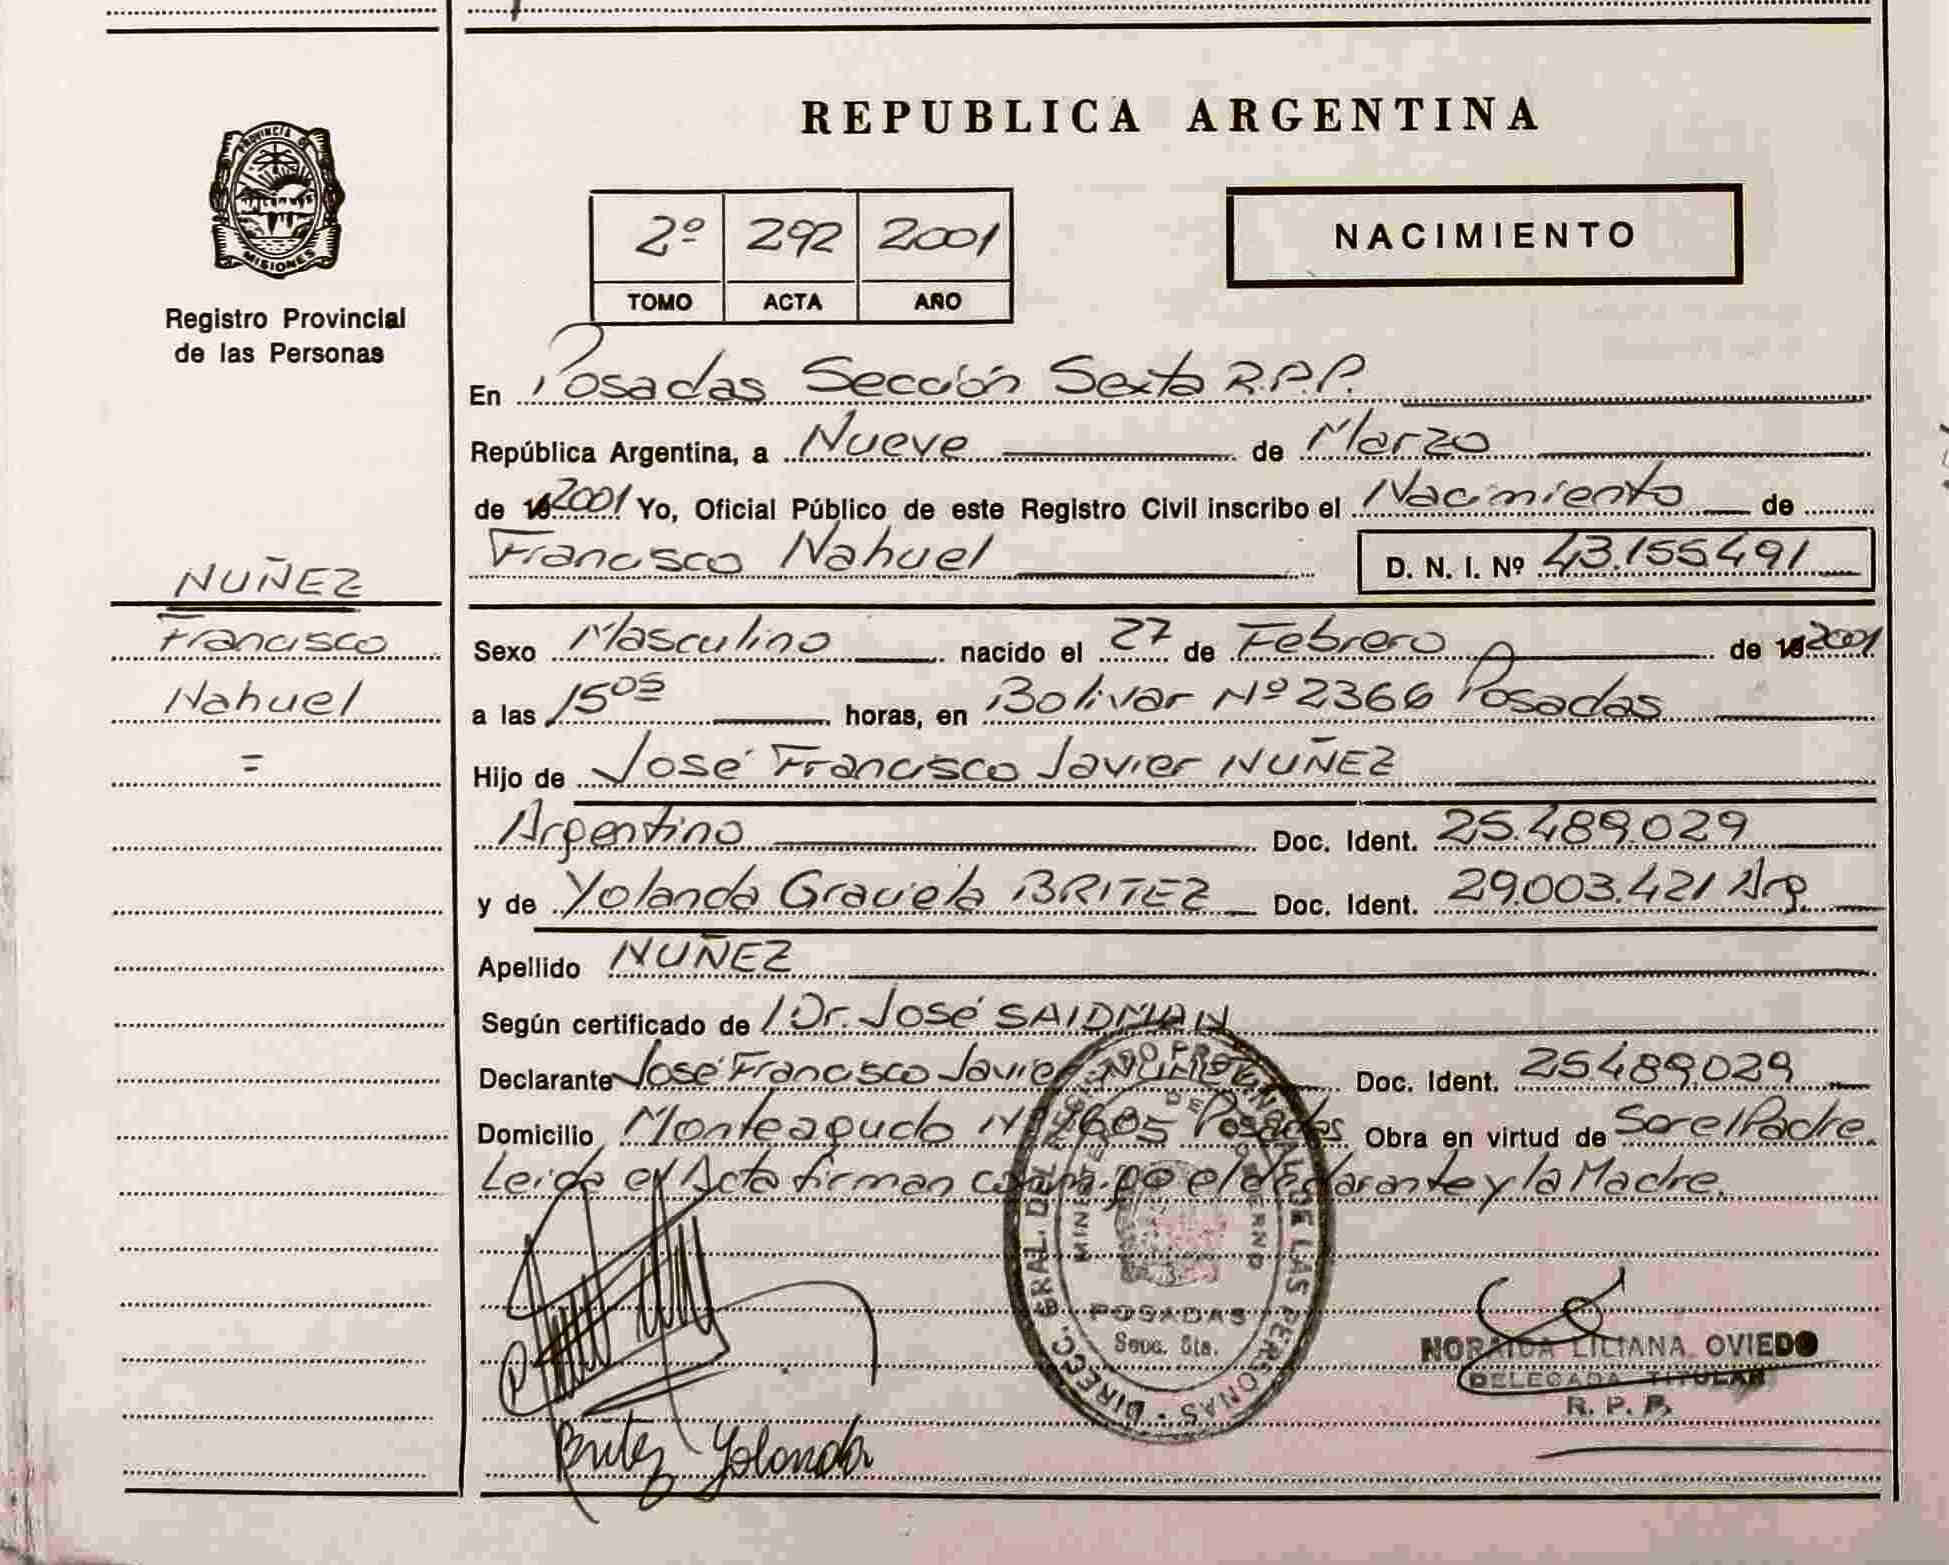 REPUBLICA ARGENTINA
PROVINCIA DE
MISIONES
Registro Provincial
de las Personas
2º 292 2001
TOMO ACTA AÑO
NACIMIENTO
En Posadas Sección Sexta R.P.P.
República Argentina, a Nueve de Marzo
de 2001 Yo, Oficial Público de este Registro Civil inscribo el Nacimiento de
Francisco Nahuel D. N. I. Nº 43.155.491
NUÑEZ
Francisco
Nahuel
=
Sexo Masculino nacido el 27 de Febrero de 2001
a las 15⁰⁵ horas, en Bolivar Nº 2366 Posadas
Hijo de José Francisco Javier NUÑEZ
Argentino Doc. Ident. 25.489.029
y de Yolanda Graciela BRITEZ Doc. Ident. 29.003.421 Arg.
Apellido NUÑEZ
Según certificado de Dr. José SAIDMAN
Declarante José Francisco Javier NUÑEZ Doc. Ident. 25.489.029
Domicilio Monteagudo Posadas Obra en virtud de Ser el Padre
Leida el Acta firman conmigo el declarante y la Madre.
DIRECC. GRAL. DEL REGISTRO PROVINCIAL DE LAS PERSONAS
MINISTERIO DE GOBIERNO
POSADAS
Secc. 6ta.
NORAIDA LILIANA OVIEDO
DELEGADA TITULAR
R. P. P.
Britez Yolanda